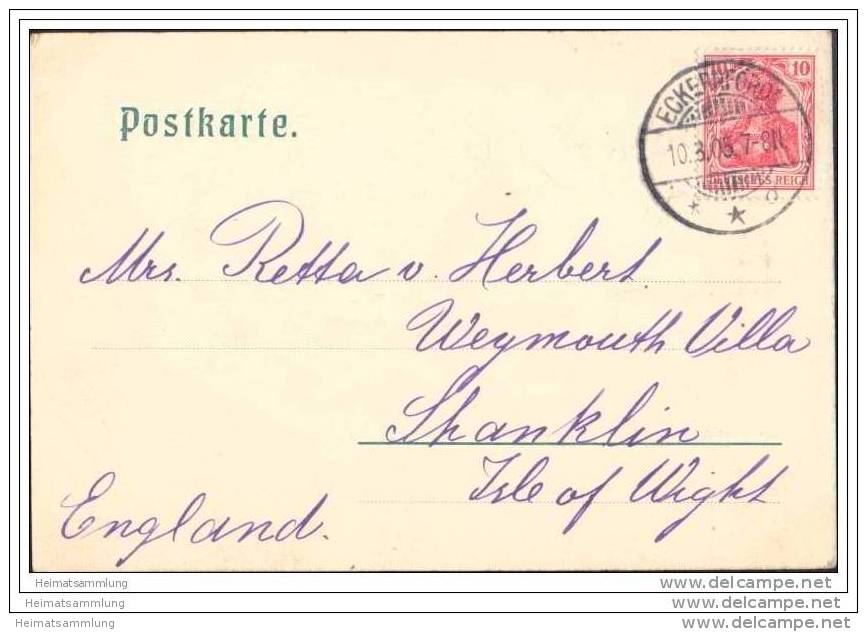 Postkarte.
10 10
DEUTSCHES REICH
ECKERNFÖRDE
10.3.05.7-8N.
Mrs. Retta v. Herbert
Weymouth Villa
Shanklin
Isle of Wight
England.
Heimatsammlung www.delcampe.net
Heimatsammlung www.delcampe.net
Heimatsammlung www.delcampe.net